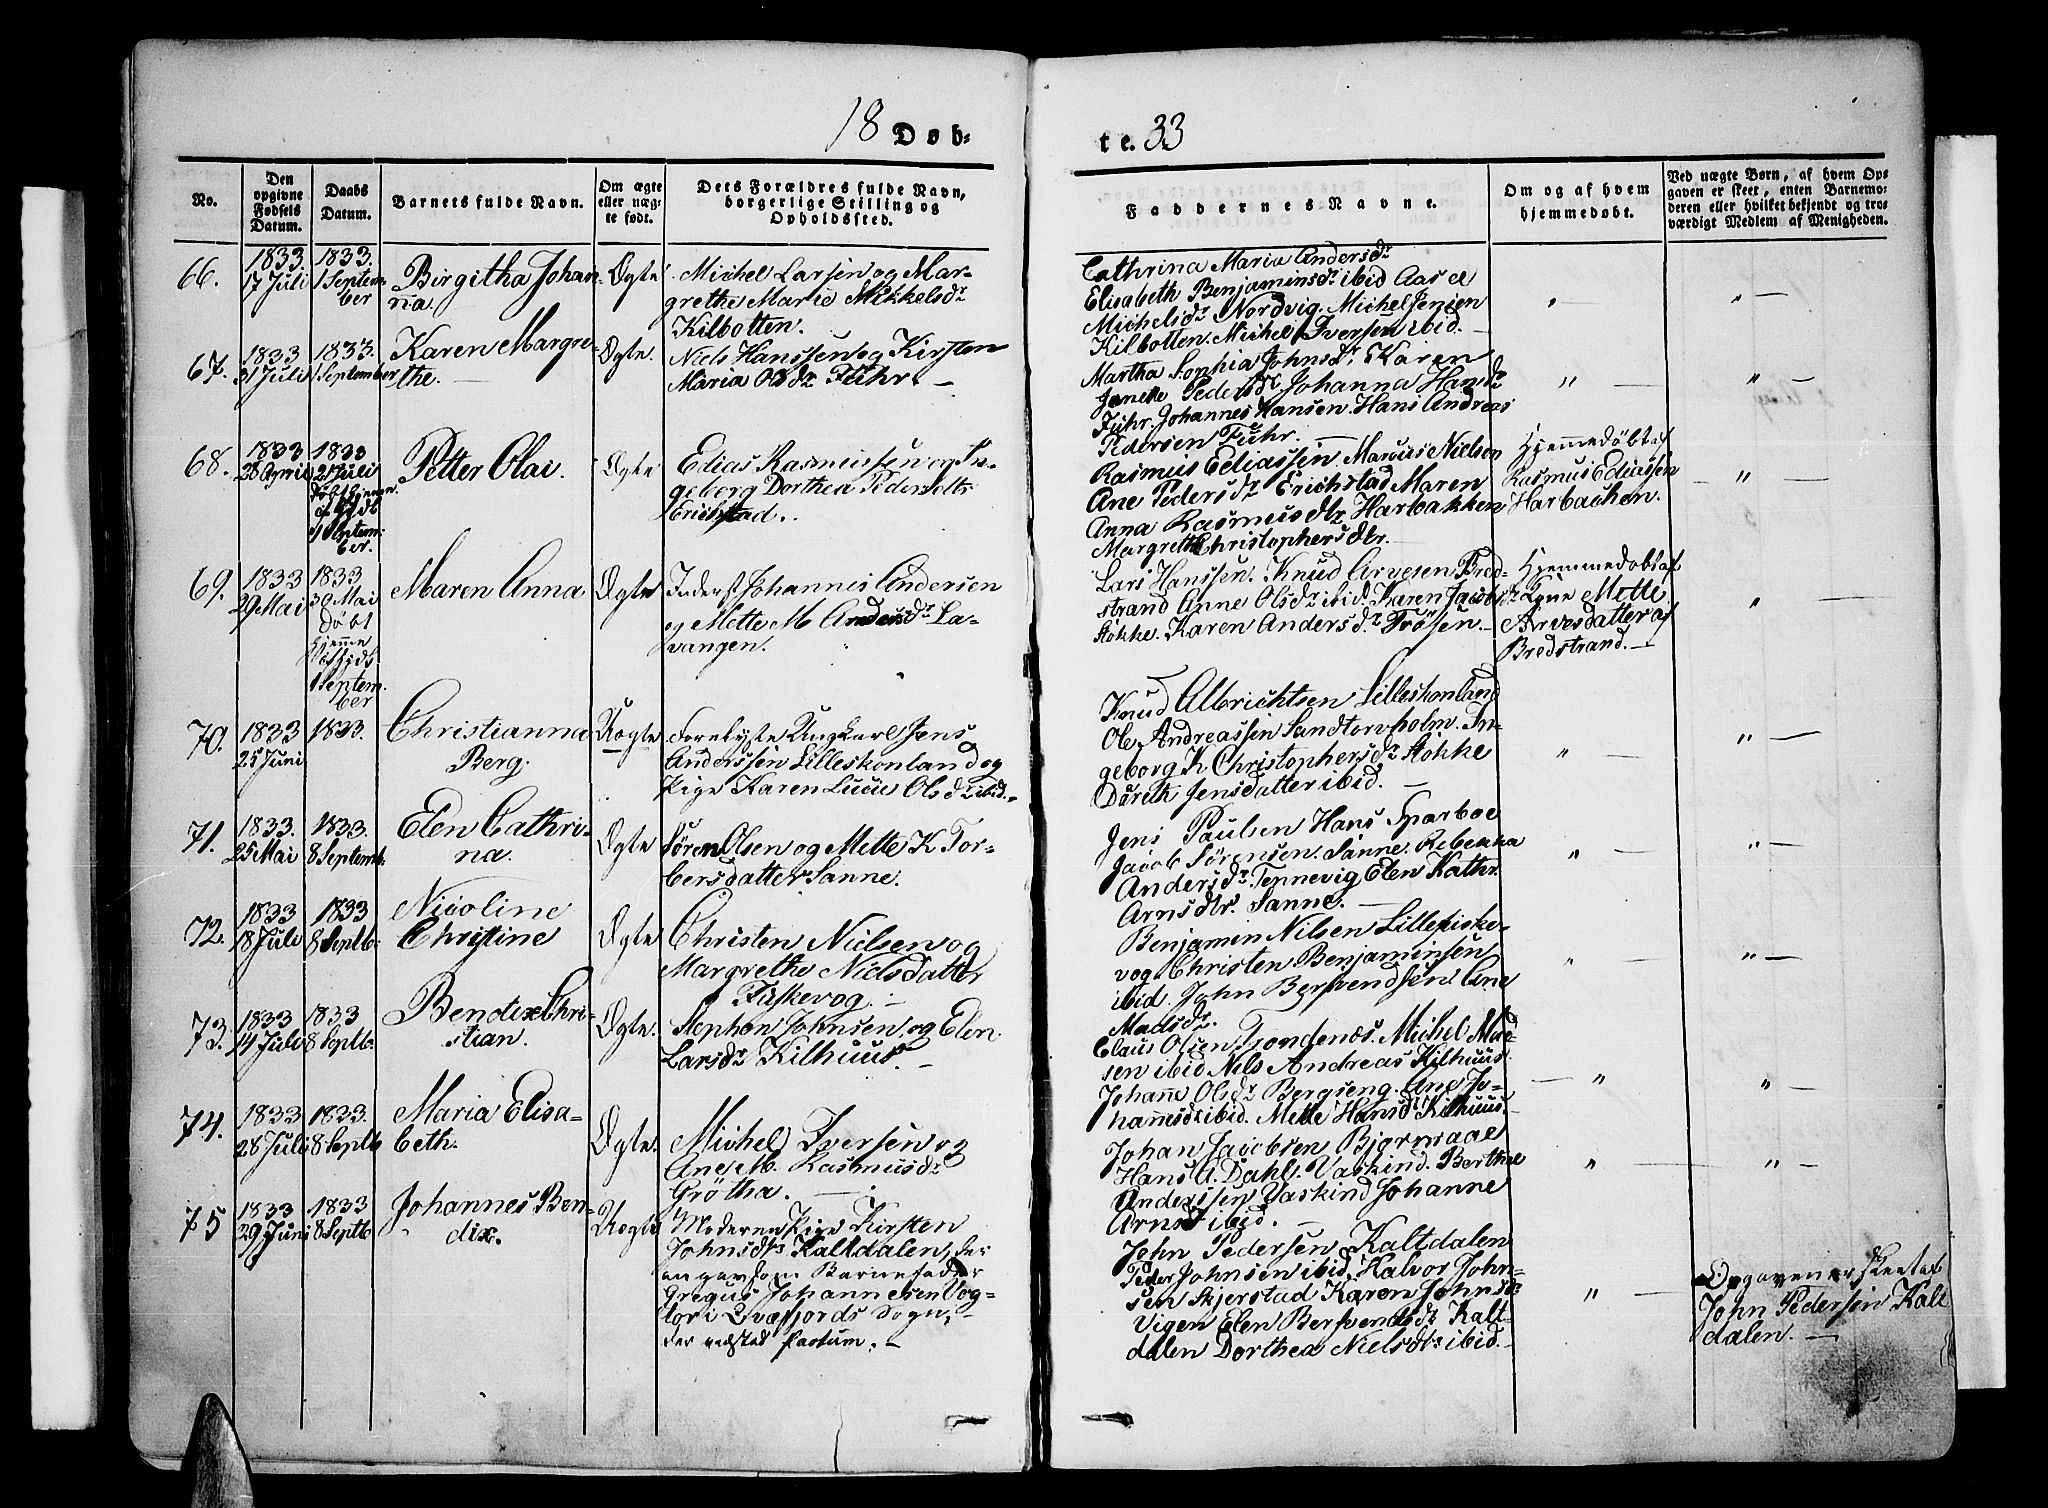 18 Døb-
te. 33
No.
Den opgivne Fødsels Datum.
Daabs Datum.
Barnets fulde Navn.
Om ægte eller uæg-
te født.
Dets Forældres fulde Navn,
borgerlige Stilling og
Opholdssted.
Faddernes Navne.
Om og af hvem
hjemmedøbt.
Ved uægte Børn, af hvem Op-
gaven er skeet, enten Barnemo-
deren eller hvilket bekjendt og tro-
værdigt Medlem af Menigheden.
66.
1833
17 Juli
1833.
1 Septem-
ber
Birgitha Johan-
na.
Ægte
Michel Larsen og Mar-
grethe Marie Mikkelsdr
Kilbotten.
Cathrina Maria Andersdr
Elisabeth Benjaminsdr ibid Aasel
Michelsdr Nordvig. Michel Jensen
Kilbotten. Michel Iversen ibid.
67.
1833
31 Juli
1833.
1 September
Karen Margre-
the.
Ægte.
Niels Hanssen og Kirsten
Maria Olsdr Fuhr.
Martha Sophia Johnsdr. Karen
Pedersdr Johanna Hansdr
Fuhr. Johannes Hansen. Hans Andreas
Pedersen Fuhr.
68.
1833
28 April
1833
21 Juli
døbt hjemme.
1 Septem-
ber.
Petter Olai.
Ægte
Edias Rasmussen og In-
geborg Dorthea Pedersdtr
Erichstad.
Rasmus Ediassen. Marcus Nielsen
Ane Pedersdr Erichstad Maren
Anna Rasmusdtr Harbakken
Margreth Christophersdtr.
Hjemmedøbt af
Rasmus Ediassen
Harbachen.
69.
1833
29 Mai
1833
30 Mai
Døbt
hjemme
1 Septem-
ber
Maren Anna
Ægte
Inderst Johannes Andersen
og Mette M Andersdr La-
vangen.
Lars Hanssen. Knud Arvesen Bred-
strand Anne Olsdr ibid. Karen Jacobsdr
Støkke. Karen Andersdr Trøsen.
Hjemmedøbt af
Mette
Arvesdatter af
Bredstrand.
70.
1833
25 Juni
1833.
Christianna
Berg.
Uægte
Ungkarl Jens
Anderssen Lilleskonland og
Pige Karen Lucie Olsdr ibid.
Knud Albrichtsen Lilleskonland
Ole Andreassen Sandtorvholm. In-
geborg K Christophersdr Støkke
Doreth Jensdatter ibid.
71.
1833.
25 Mai
1833.
8 Septemb.
Elen Cathri-
na.
Ægte
Søren Olsen og Mette K Tor-
bersdatter Sanne.
Jens Paulsen Hans Sparboe
Jacob Sørensen. Sanne. Rebekka
Andersdr. Tennevig Elen Kathr.
Arnsdtr. Sanne.
72.
1833
18 Juli
1833
8 Septb.
Nicoline
Christine
Ægte
Christen Nielsen og
Margrethe Nielsdatter
Fiskevog.
Benjamin Nilsen Lillefiske-
vog Christen Benjaminsen
ibid. John Bersvendsen. Ane
Madsdr.
73.
1833
14 Juli
1833
8 Septb.
Bendix Chri-
stian.
Ægte.
Stephan Johnsen og Elen
Larsdr Kilhuus.
Claus Olsen Trondenæs. Michel
sen ibid Nils Andreas Kilhuus
Johanne Olsdr Bergseng. Ane Jo-
hannesdr ibid. Mette Hansdr Kilhuus.
74.
1833
28 Juli
1833.
8 Septb
Maria Elisa-
beth.
Ægte.
Michel Iversen og
Ane M. Rasmusdr
Grøtha.
Johan Jacobsen Bjørnraae
Hans A. Dahl. Vaskind. Berthel
Anderssen Vaskind Johanne
ibid.
75
1833
29 Juni
1833
8 Septb
Johannes Ben-
dix.
Uægte
Moderen Pige Kirsten
Johnsdtr Kaltdalen, der
angav som Barnefader
Gregus Johannesen Vog-
tor i Qvæfjords Sogn,
John Pedersen Kaltdalen
Peder Johnsen ibid. Halvor John-
sen Skjerstad Karen Johnsdr
Vigen Elen Bersvendsdr Kalt-
dalen Dorthea Nielsdtr ibid.
Opgaven er skeet af
John Pedersen Kalt
dalen.